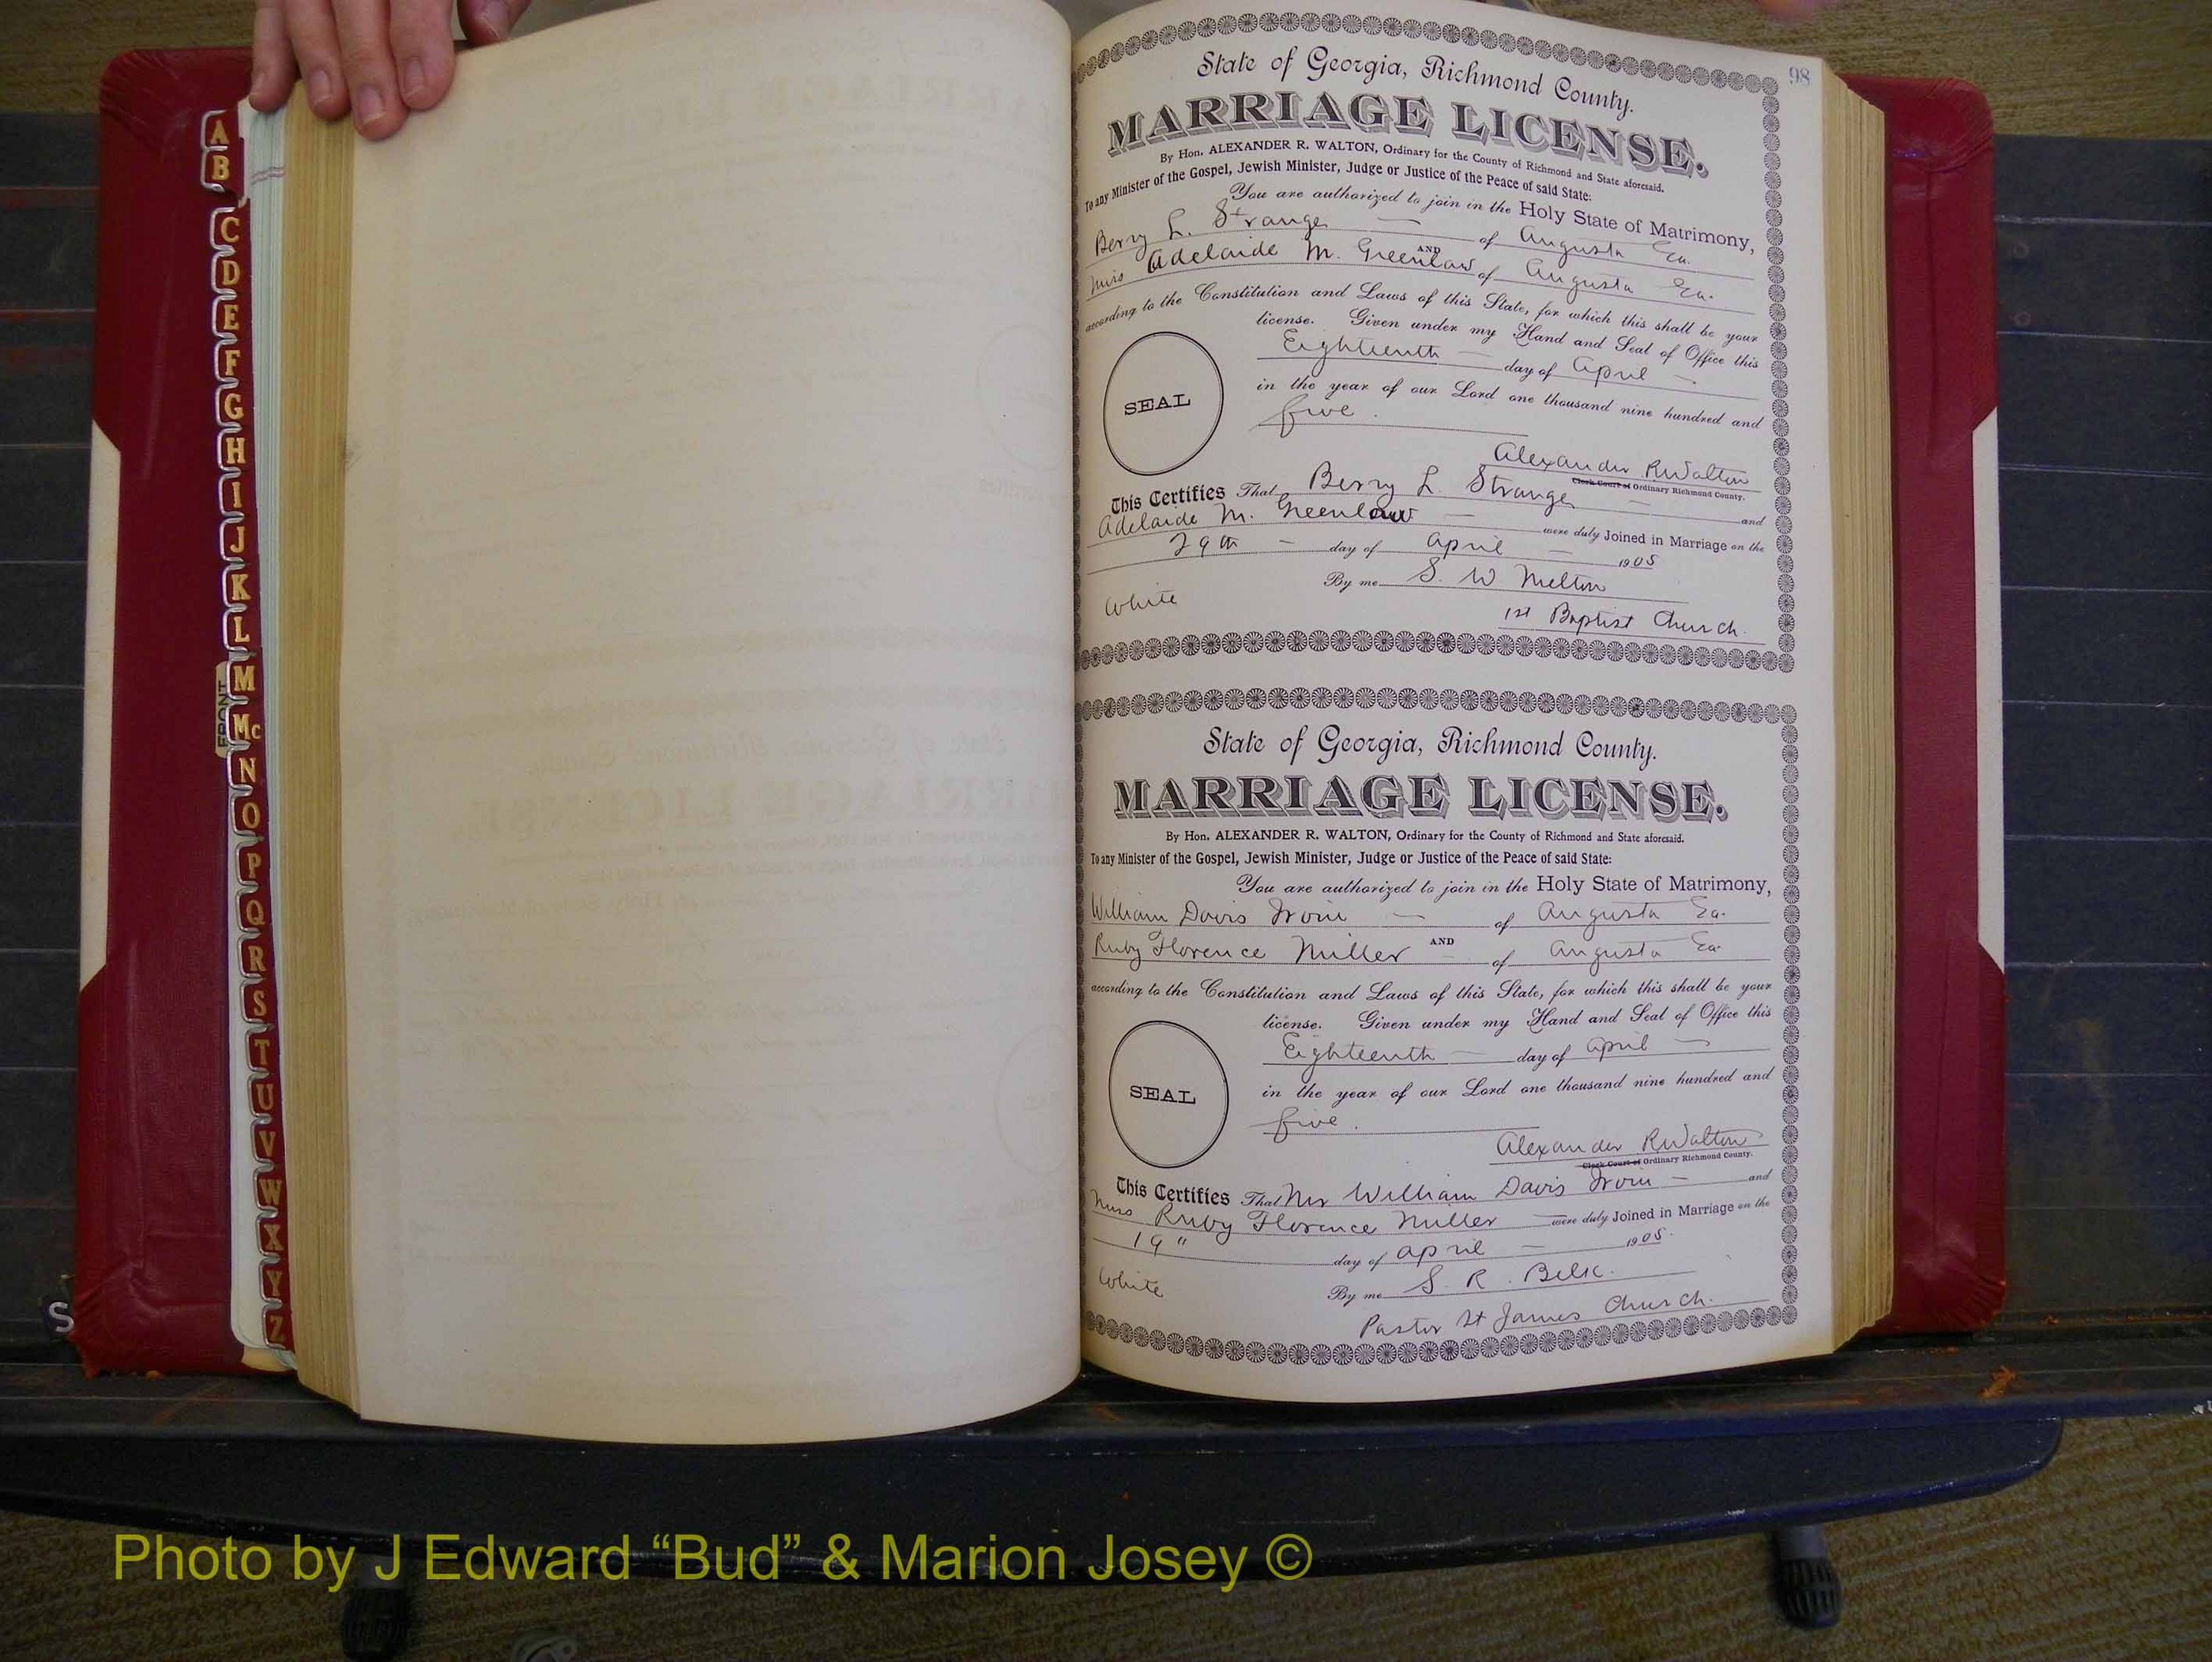 A
B
C
D
E
F
G
H
I
J
K
L
M
Mc
N
O
P
Q
R
S
T
U
V
W
X
Y
Z
FRONT
S
98
State of Georgia, Richmond County.
MARRIAGE LICENSE.
By Hon. ALEXANDER R. WALTON, Ordinary for the County of Richmond and State aforesaid.
To any Minister of the Gospel, Jewish Minister, Judge or Justice of the Peace of said State:
You are authorized to join in the Holy State of Matrimony,
Berry L. Strange — of Augusta Ga.
AND
Miss Adelaide M. Greenlaw of Augusta Ga.
according to the Constitution and Laws of this State, for which this shall be your
license. Given under my Hand and Seal of Office this
Eighteenth — day of April —
in the year of our Lord one thousand nine hundred and
five.
SEAL
Alexander R Walton
Clerk Court of Ordinary Richmond County.
This Certifies That Berry L. Strange — and
Adelaide M. Greenlaw — were duly Joined in Marriage on the
29th — day of April — 1905
By me S. W Melton
White
1st Baptist Church.
State of Georgia, Richmond County.
MARRIAGE LICENSE.
By Hon. ALEXANDER R. WALTON, Ordinary for the County of Richmond and State aforesaid.
To any Minister of the Gospel, Jewish Minister, Judge or Justice of the Peace of said State:
You are authorized to join in the Holy State of Matrimony,
William Davis Irvin — of Augusta Ga.
AND
Ruby Florence Miller — of Augusta Ga
according to the Constitution and Laws of this State, for which this shall be your
license. Given under my Hand and Seal of Office this
Eighteenth — day of April —
in the year of our Lord one thousand nine hundred and
five.
SEAL
Alexander R Walton
Clerk Court of Ordinary Richmond County.
This Certifies That Mr William Davis Irvin — and
Miss Ruby Florence Miller — were duly Joined in Marriage on the
19" day of April — 1905.
By me S. R. Belk.
White
Pastor St James Church.
Photo by J Edward “Bud” & Marion Josey ©